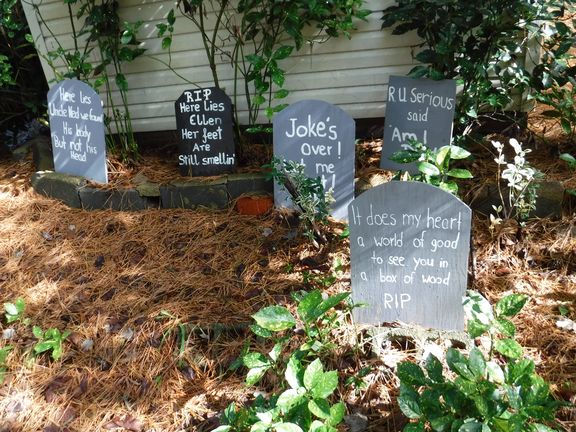 Here lies
Uncle Ned we found
His body
But not his
Head
RIP
Here Lies
Ellen
Her feet
Are
Still smellin'
Joke's
over!
me
R U Serious
said
Am I
It does my heart
a world of good
to see you in
a box of wood
RIP